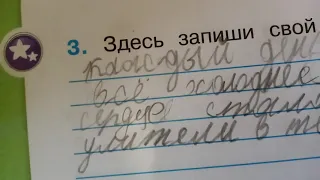 3. Здесь запиши свой
каждый день
всё холоднее
сердце стало
улители в те